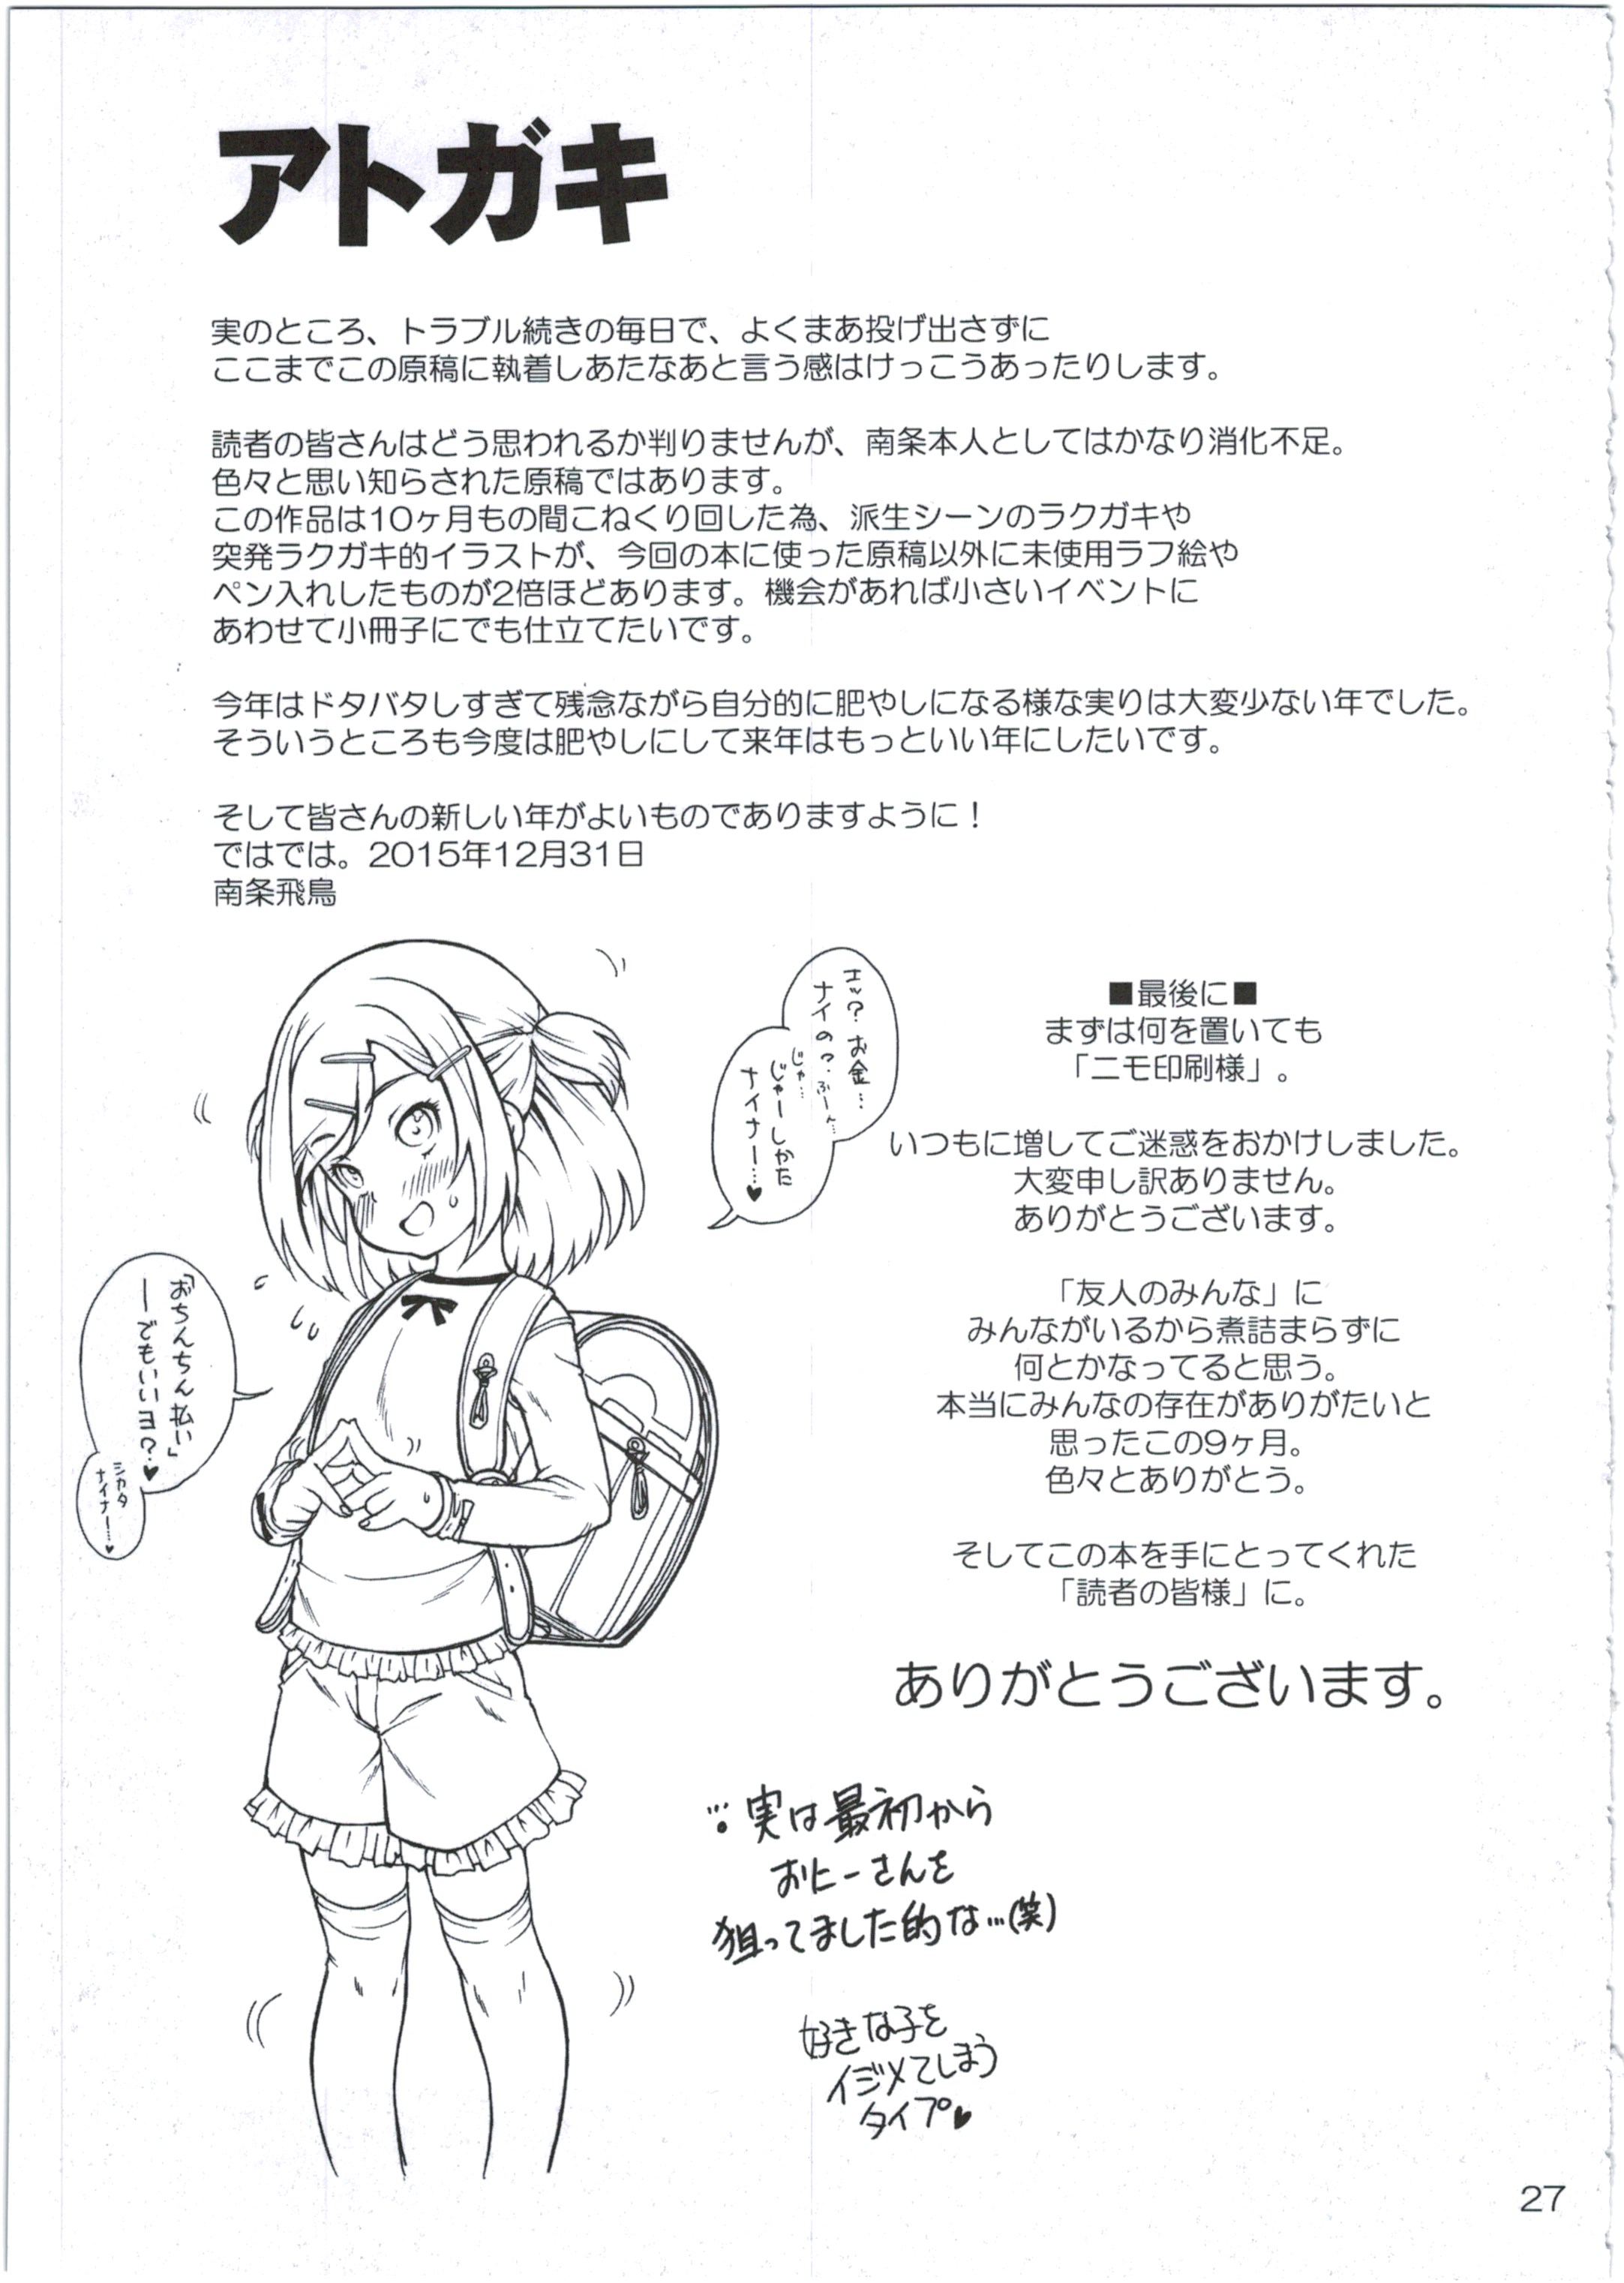 アトガキ
実のところ、トラブル続きの毎日で、よくまあ投げ出さずに
ここまでこの原稿に執着しあたなあと言う感はけっこうあったりします。
読者の皆さんはどう思われるか判りませんが、南条本人としてはかなり消化不足。
色々と思い知らされた原稿ではあります。
この作品は10ヶ月もの間こねくり回した為、派生シーンのラクガキや
突発ラクガキ的イラストが、今回の本に使った原稿以外に未使用ラフ絵や
ペン入れしたものが2倍ほどあります。機会があれば小さいイベントに
あわせて小冊子にでも仕立てたいです。
今年はドタバタしすぎて残念ながら自分的に肥やしになる様な実りは大変少ない年でした。
そういうところも今度は肥やしにして来年はもっといい年にしたいです。
そして皆さんの新しい年がよいものでありますように！
ではでは。2015年12月31日
南条飛鳥
■最後に■
まずは何を置いても
「ニモ印刷様」。
いつもに増してご迷惑をおかけしました。
大変申し訳ありません。
ありがとうございます。
「友人のみんな」に
みんながいるから煮詰まらずに
何とかなってると思う。
本当にみんなの存在がありがたいと
思ったこの9ヶ月。
色々とありがとう。
そしてこの本を手にとってくれた
「読者の皆様」に。
ありがとうございます。
27